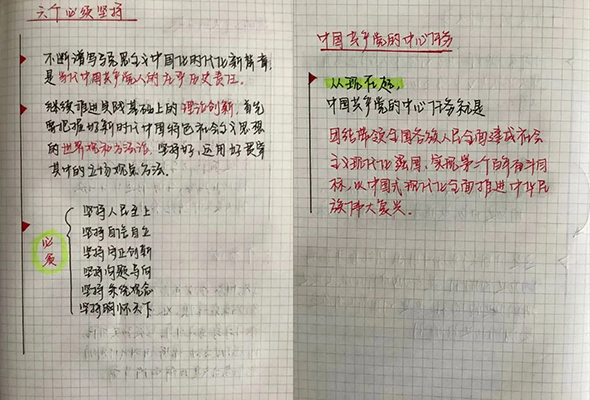 六个必须坚持
不断谱写马克思主义中国化时代化新篇章,
是当代中国共产党人的庄严历史责任。
继续推进实践基础上的理论创新,首先
要把握好新时代中国特色社会主义思想
的世界观和方法论,坚持好、运用好贯穿
其中的立场观点方法。
必须
坚持人民至上
坚持自信自立
坚持守正创新
坚持问题导向
坚持系统观念
坚持胸怀天下
中国共产党的中心任务
从现在起,
中国共产党的中心任务就是
团结带领全国各族人民全面建成社会
主义现代化强国、实现第二个百年奋斗目
标,以中国式现代化全面推进中华民
族伟大复兴.